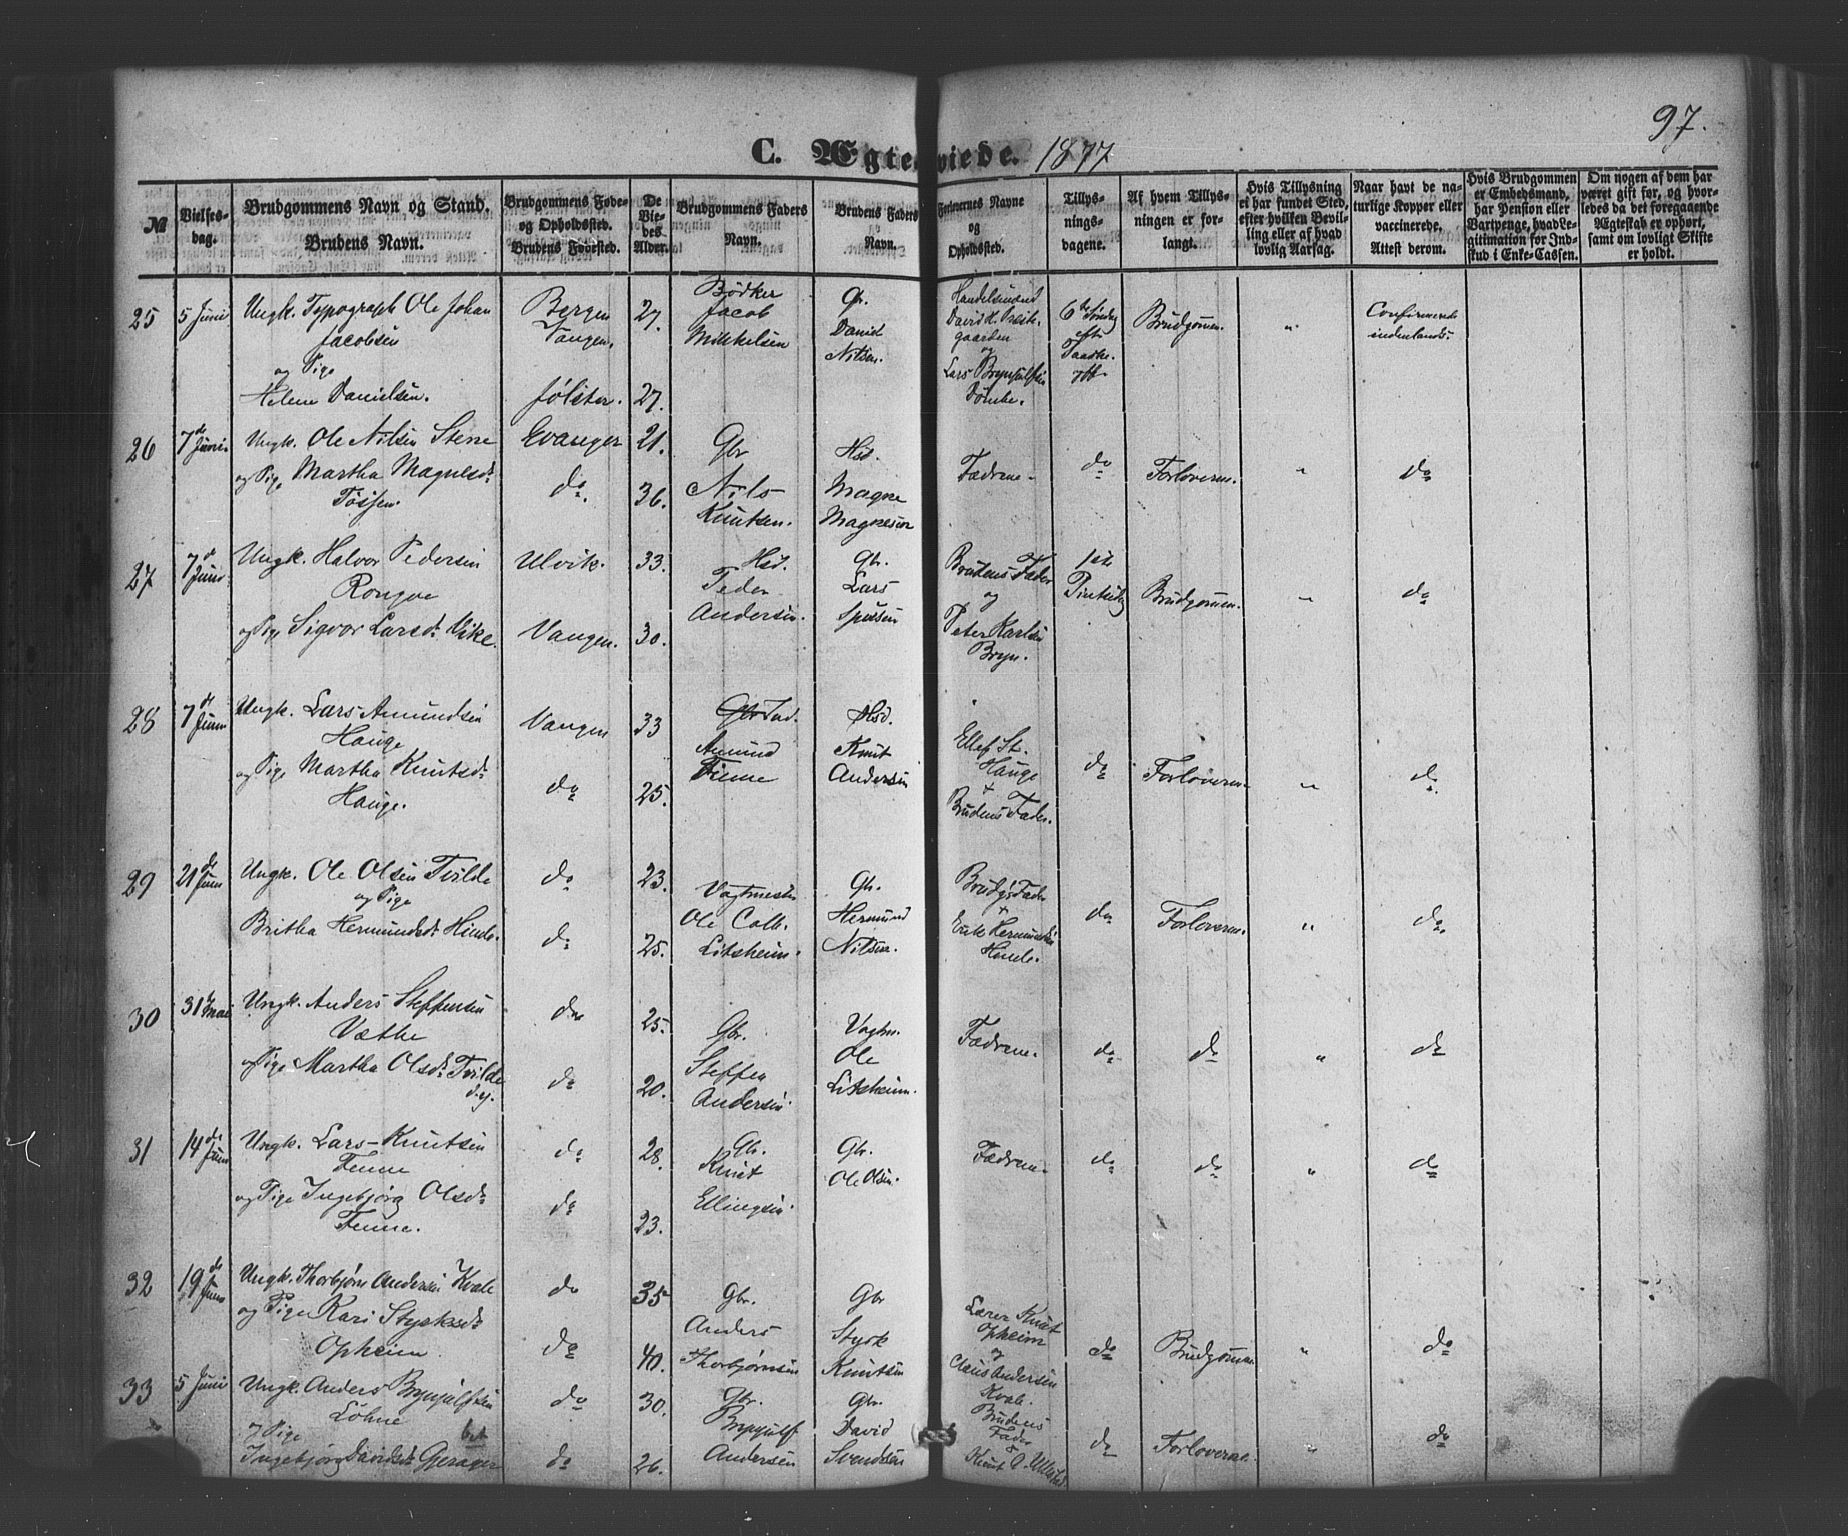 97.
C. Ægteviede. 1877
№
Vielses-
dag.
Brudgommens Navn og Stand.
Brudens Navn.
Brudgommens Føde-
og Opholdssted.
Brudens Fødested.
De
Vie-
des
Alder.
Brudgommens Faders
Navn.
Brudens Faders
Navn.
Forlovernes Navne
og
Opholdssted.
Tillys-
nings-
dagene.
Af hvem Tillys-
ningen er for-
langt.
Hvis Tillysning
ei har fundet Sted,
efter hvilken Bevil-
ling eller af hvad
lovlig Aarsag.
Naar havt de na-
turlige Kopper eller
vaccinerede,
Attest derom.
Hvis Brudgommen
er Embedsmand,
har Pension eller
Vartpenge, hvad Le-
gitimation for Ind-
skud i Enke-Cassen.
Om nogen af dem har
været gift før, og hvor-
ledes da det foregaaende
Ægteskab er ophørt,
samt om lovligt Skifte
er holdt.
25
5 Juni
Ungk. Typograph Ole Johan
Jacobsen
og Pige
Helene Danielsen.
Bergen
Vangen.
Jølster.
27.
27.
Bødker
Jacob
Mikkelsen
Gr.
Daniel
Nilsen.
Handelsmand
David H. Preste-
gaarden
og
Lars Brynjulfsen
Dømbe.
6te Søndag
eft.
Paaske.
Brudgommen.
"
Confirmerede
indenlands.
26
7de Juni.
Ungk. Ole Nilsen Stene
og Pige Martha Magnesdr
Tøssen.
Evanger
do.
21.
36.
Gbr
Nils
Knutsen.
Hsd.
Magne
Magnesen
Fædrene.
do
Forloverne.
"
do
27
7de Juni.
Ungk. Halvor Pedersen
Rongve
og Pige Sigvor Larsdr Vike.
Ulvik.
Vangen.
33.
30.
Hsd.
Peder
Andersen.
Gbr.
Lars
Brudens Fader
og
Peter Karlsen
Bryn.
1ste
Pintsedag
Brudgommen.
"
do
28
7de Juni
Ungk. Lars Amundsen
Hauge
og Pige Martha Knutsdr
Hauge.
Vangen
do
33
25.
Amund
Finne
Hsd.
Knut
Andersen
Ellef St.
Hauge
+
Brudens Fader.
do
Forloverne
"
do.
29
21de Juni
Ungk. Ole Olsen Tvilde
og Pige
Britha Hermundsdr Hinde.
do
do
23.
25.
Vagtmester
Ole Colb.
Litsheim.
Gbr.
Hermund
Nilsen.
Brudg's Fader
+
Erik Hermundsen
Hinde.
do
Forloverne.
"
do.
30
31de Mai
Ungk. Anders Steffensen
Væthe
og Pige Martha Olsdr Tvilde
d.y.
do
do
25.
20.
Gbr.
Steffen
Andersen.
Vagtm.
Ole
Litsheim.
Fædrene.
do
do
"
do
31
14de Juni
Ungk. Lars Knutsen
Fenne
og Pige Ingebjørg Olsdr
Fenne.
do
do
28.
23.
Gbr.
Knut
Ellingsen.
Gbr.
Ole Olsen.
Fædrene.
do
do
"
do
32
19de Juni
Ungk. Thorbjørn Andersen Kvale
og Pige Kari Styrksdr
Opheim.
do
do
35
40.
Gbr.
Anders
Thorbjørnsen
Gbr
Styrk
Knutsen
Lærer Knut
Opheim
og
Claus Andersen
Kvale.
do
Brudgommen
"
do
33
5 Juni
Ungk. Anders Brynjulfsen
Løhne
og Pige
Ingebjørg Davidsdr Gjerager
do
do
30.
26.
Gbr.
Brynjulf
Andersen
Gbr.
David
Svendsen
Brudens
Fader
&
Knut A. Ullestad
do
Forloverne.
"
do